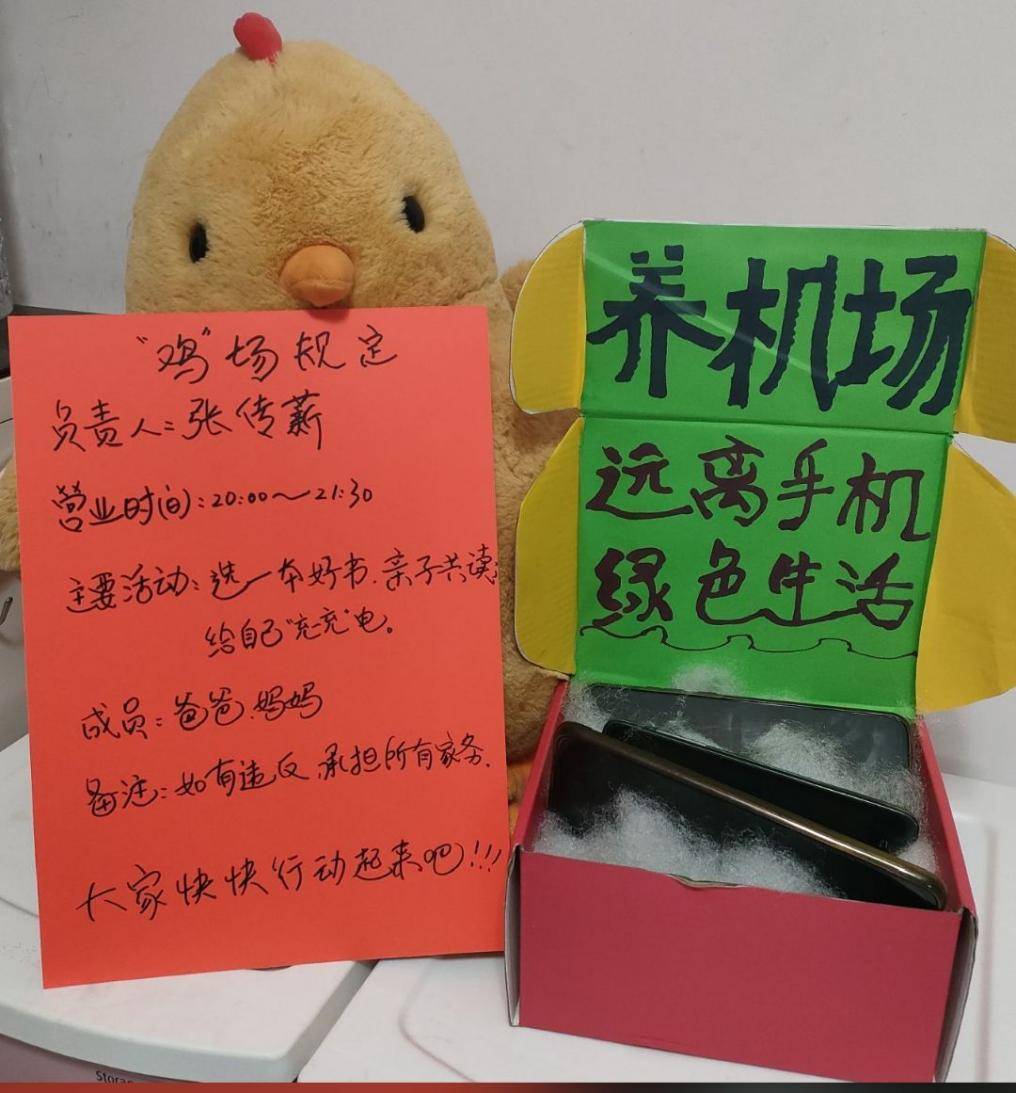 “鸡”场规定
负责人：张传薪
营业时间：20:00～21:30
主要活动：选一本好书.亲子共读
给自己“充充”电。
成员：爸爸.妈妈
备注：如有违反.承担所有家务.
大家快快行动起来吧!!!
养机场
远离手机
绿色生活